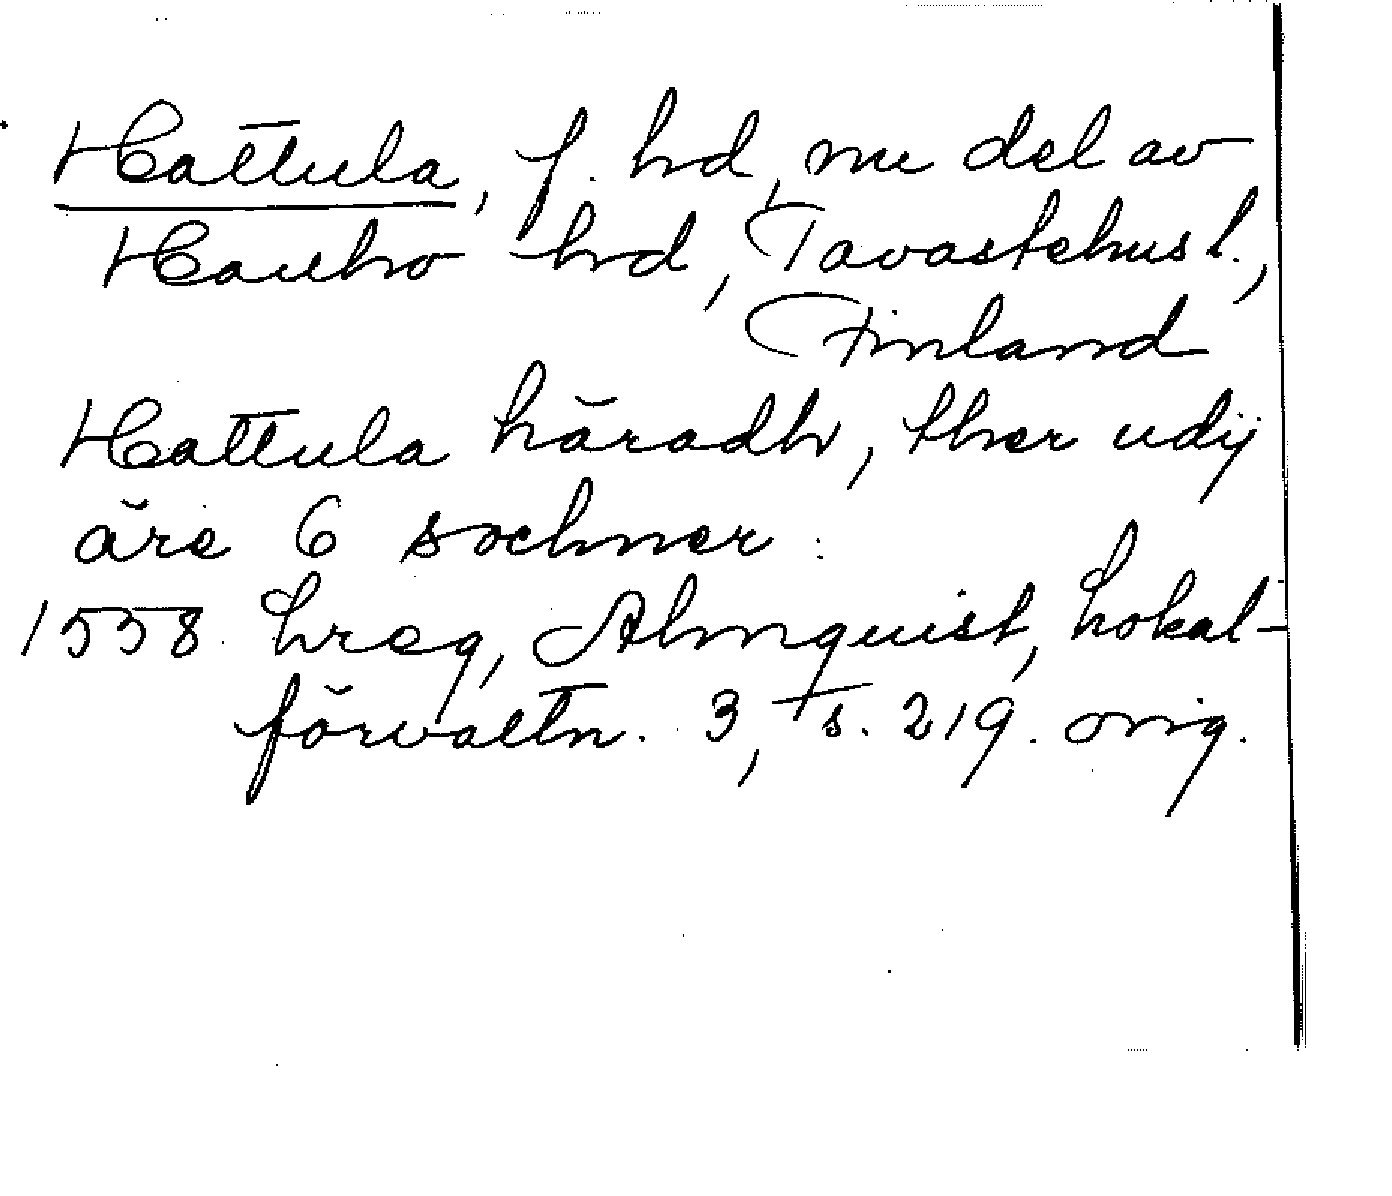 Hattula, f. hrd, nu del av
Hauho hrd, Tavastehus l.,
Finland
Hattula häradh, ther udij
äre 6 sochner:
1558 hreg, Almquist, Lokal-
förvaltn. 3, s. 219. orig.